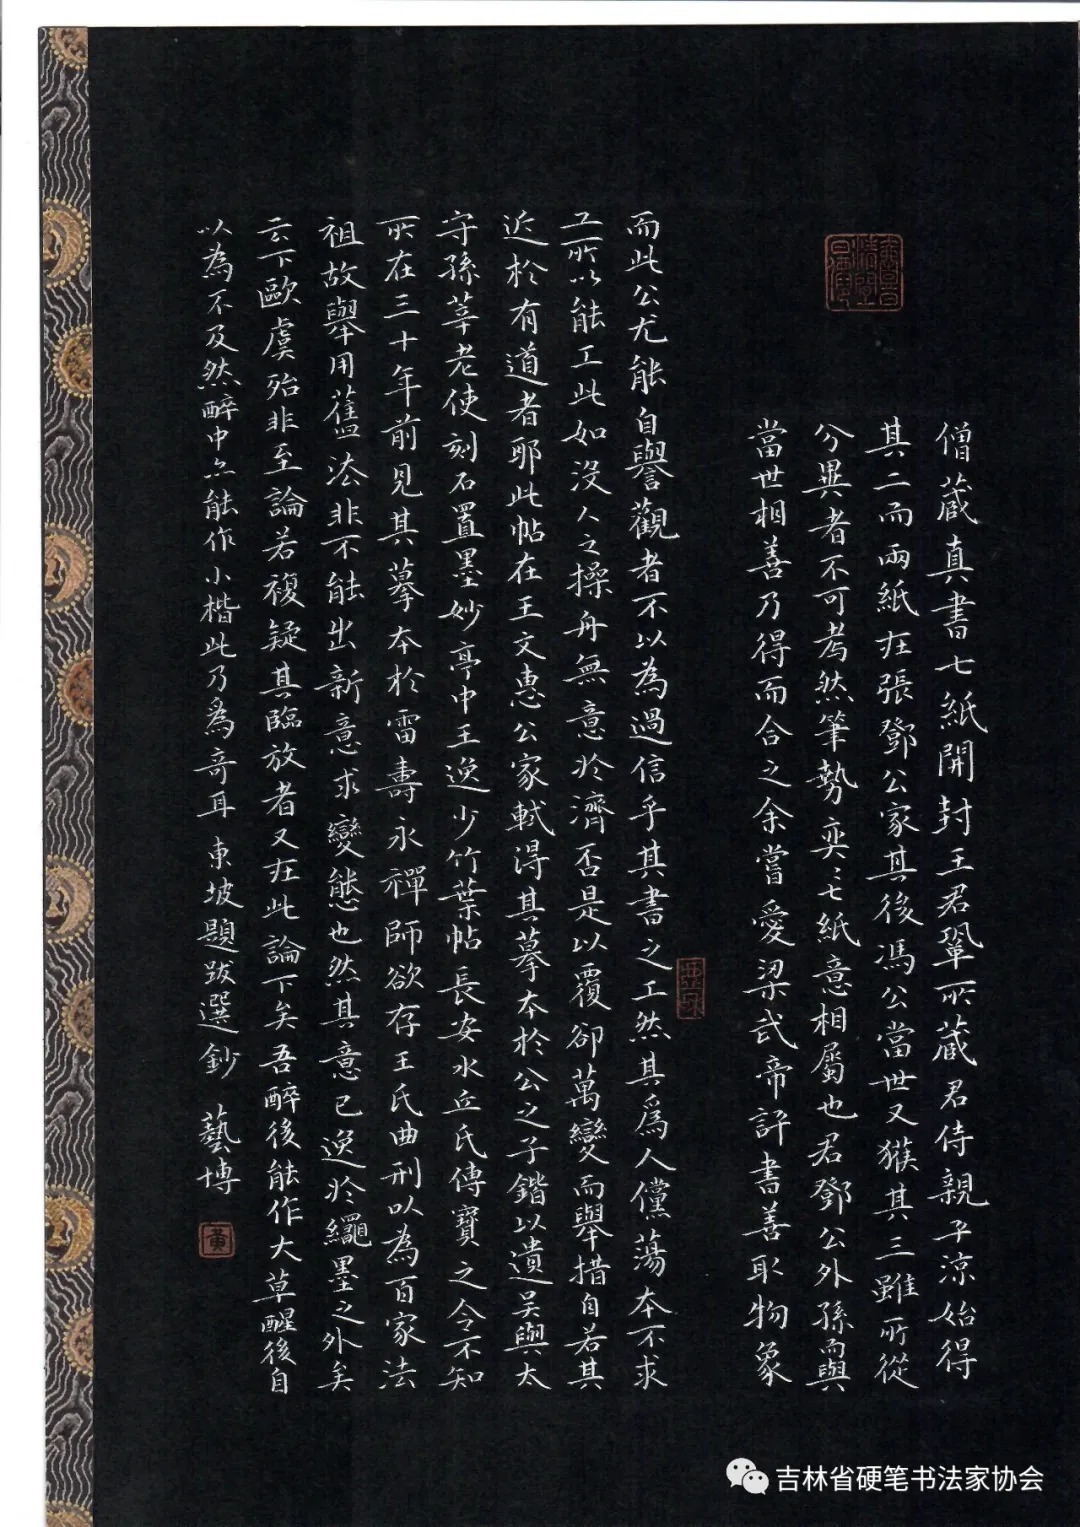 僧藏真書七紙開封王君鞏所藏君侍親平涼始得
其二而兩紙在張鄧公家其後馮公當世又獲其三雖所從
分異者不可考然筆勢奕奕七紙意相屬也君鄧公外孫而與
當世相善乃得而合之余嘗愛梁武帝評書善取物象
而此公尤能自譽觀者不以為過信乎其書之工然其為人儻蕩本不求
工所以能工此如沒人之操舟無意於濟否是以覆卻萬變而舉措自若其
近於有道者耶此帖在王文惠公家軾得其摹本於公之子鍇以遺吳興太
守孫莘老使刻石置墨妙亭中王逸少竹葉帖長安水丘氏傳寶之今不知
所在三十年前見其摹本於雷壽永禪師欲存王氏典刑以為百家法
祖故舉用舊法非不能出新意求變態也然其意已逸於繩墨之外矣
云下歐虞殆非至論若複疑其臨放者又在此論下矣吾醉後能作大草醒後自
以為不及然醉中亦能作小楷此乃為奇耳東坡題跋選鈔 藝博
黃
吉林省硬笔书法家协会